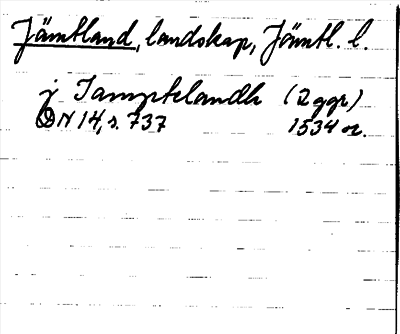 Jämtland, landskap, Jämtl. l.
j Jamptelandh (2 ggr)
DN 14, s. 737 1534 or.